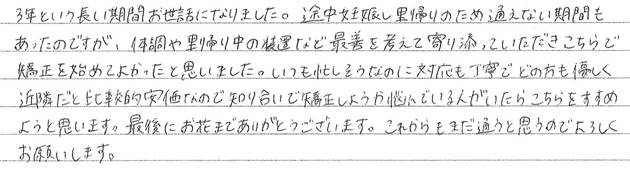 3年という長い期間お世話になりました。途中妊娠し里帰りのため通えない期間も
あったのですが、体調や里帰り中の装置など最善を考えて寄り添っていただきこちらで
矯正を始めてよかったと思いました。いつも忙しそうなのに対応も丁寧でどの方も優しく
近隣だと比較的安価なので知り合いで矯正しようか悩んでいる人がいたらこちらをすすめ
ようと思います。最後にお花までありがとうございます。これからもまだ通うと思うのでよろしく
お願いします。